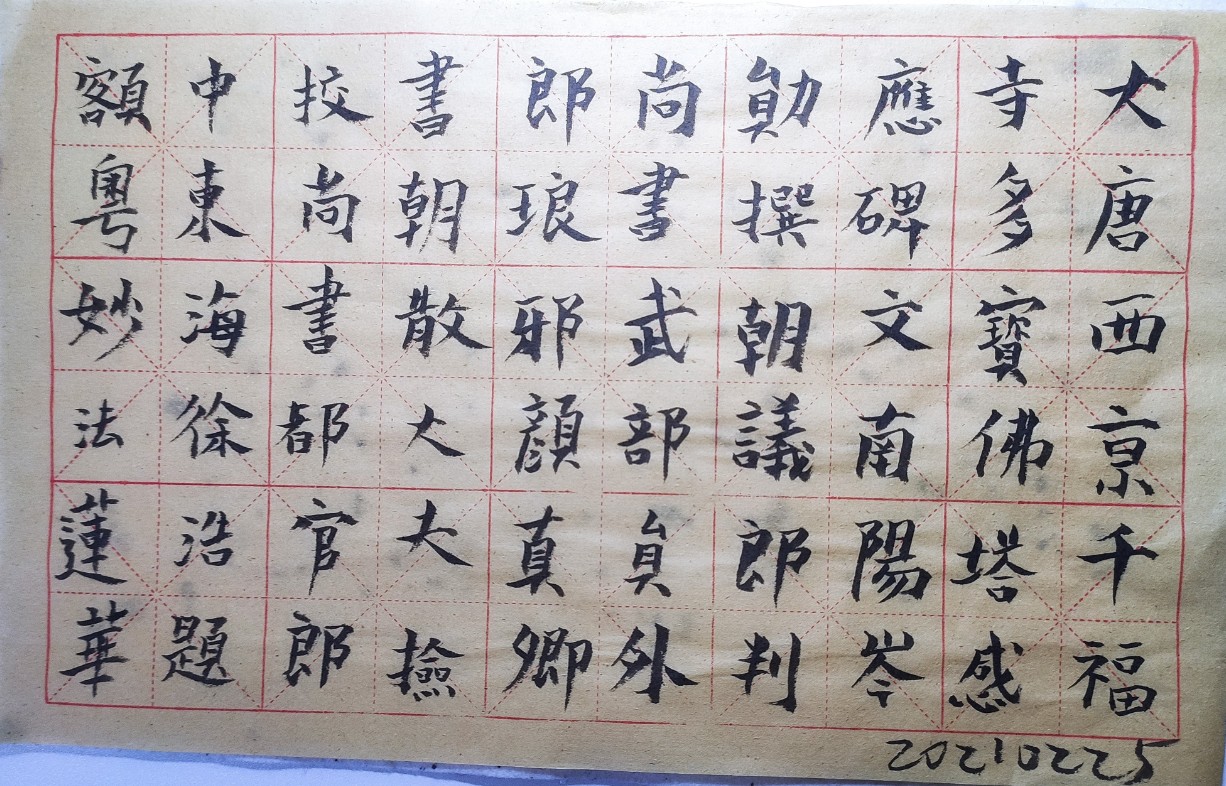 大唐西京千福
寺多寶佛塔感
應碑文南陽岑
勛撰朝議郎判
尚書武部員外
郎琅邪顏真卿
書朝散大夫撿
挍尚書都官郎
中東海徐浩題
額粵妙法蓮華
20210225